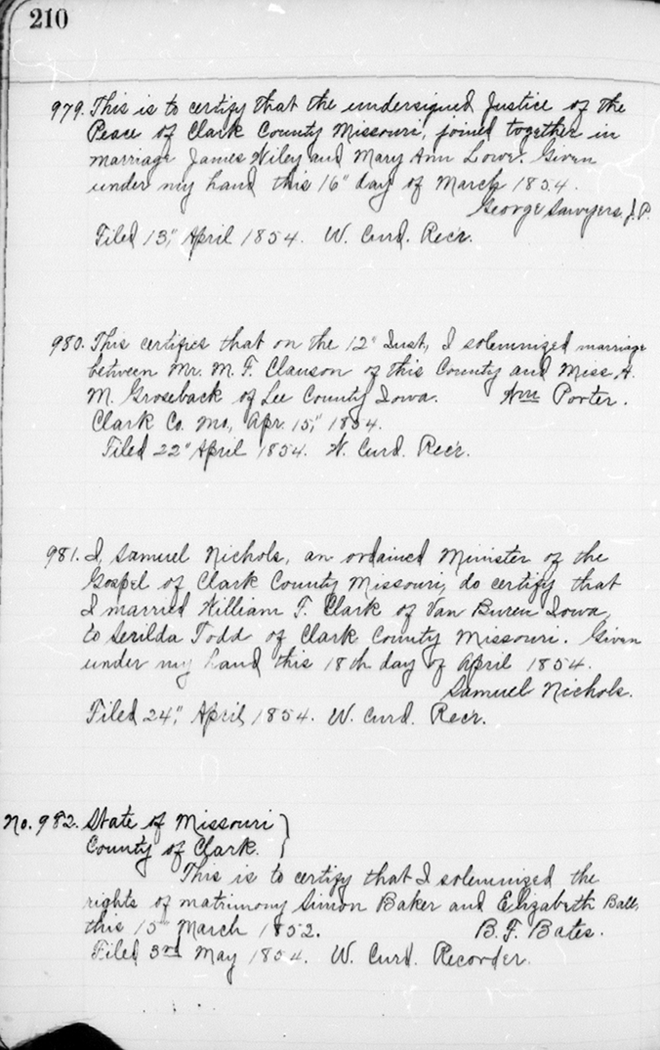 210
979. This is to certify that the undersigned Justice of the
Peace of Clark County Missouri, joined together in
marriage James Wiley and Mary Ann Lowe. Given
under my hand this 16" day of March 1854.
George Sawyers, J.P.
Filed 13," April 1854. W. Curd. Recr.
980. This certifies that on the 12" Inst, I solemnized marriage
between Mr. M. F. Clauson of this County and Miss A.
M. Groseback of Lee County Iowa. Wm Porter.
Clark Co. Mo., Apr. 15," 1854.
Filed 22" April 1854. W. Curd. Recr.
981. I, Samuel Nichols, an ordained Minister of the
Gospel of Clark County Missouri, do certify that
I married William F. Clark of Van Buren Iowa,
to Serilda Todd of Clark County Missouri. Given
under my hand this 18th day of April 1854.
Samuel Nichols.
Filed 24," April, 1854. W. Curd. Recr.
No. 982. State of Missouri }
County of Clark. }
This is to certify that I solemnized the
rights of matrimony Simon Baker and Elizabeth Ball,
this 15th March 1852. B. F. Bates.
Filed 3rd May 1854. W. Curd. Recorder.